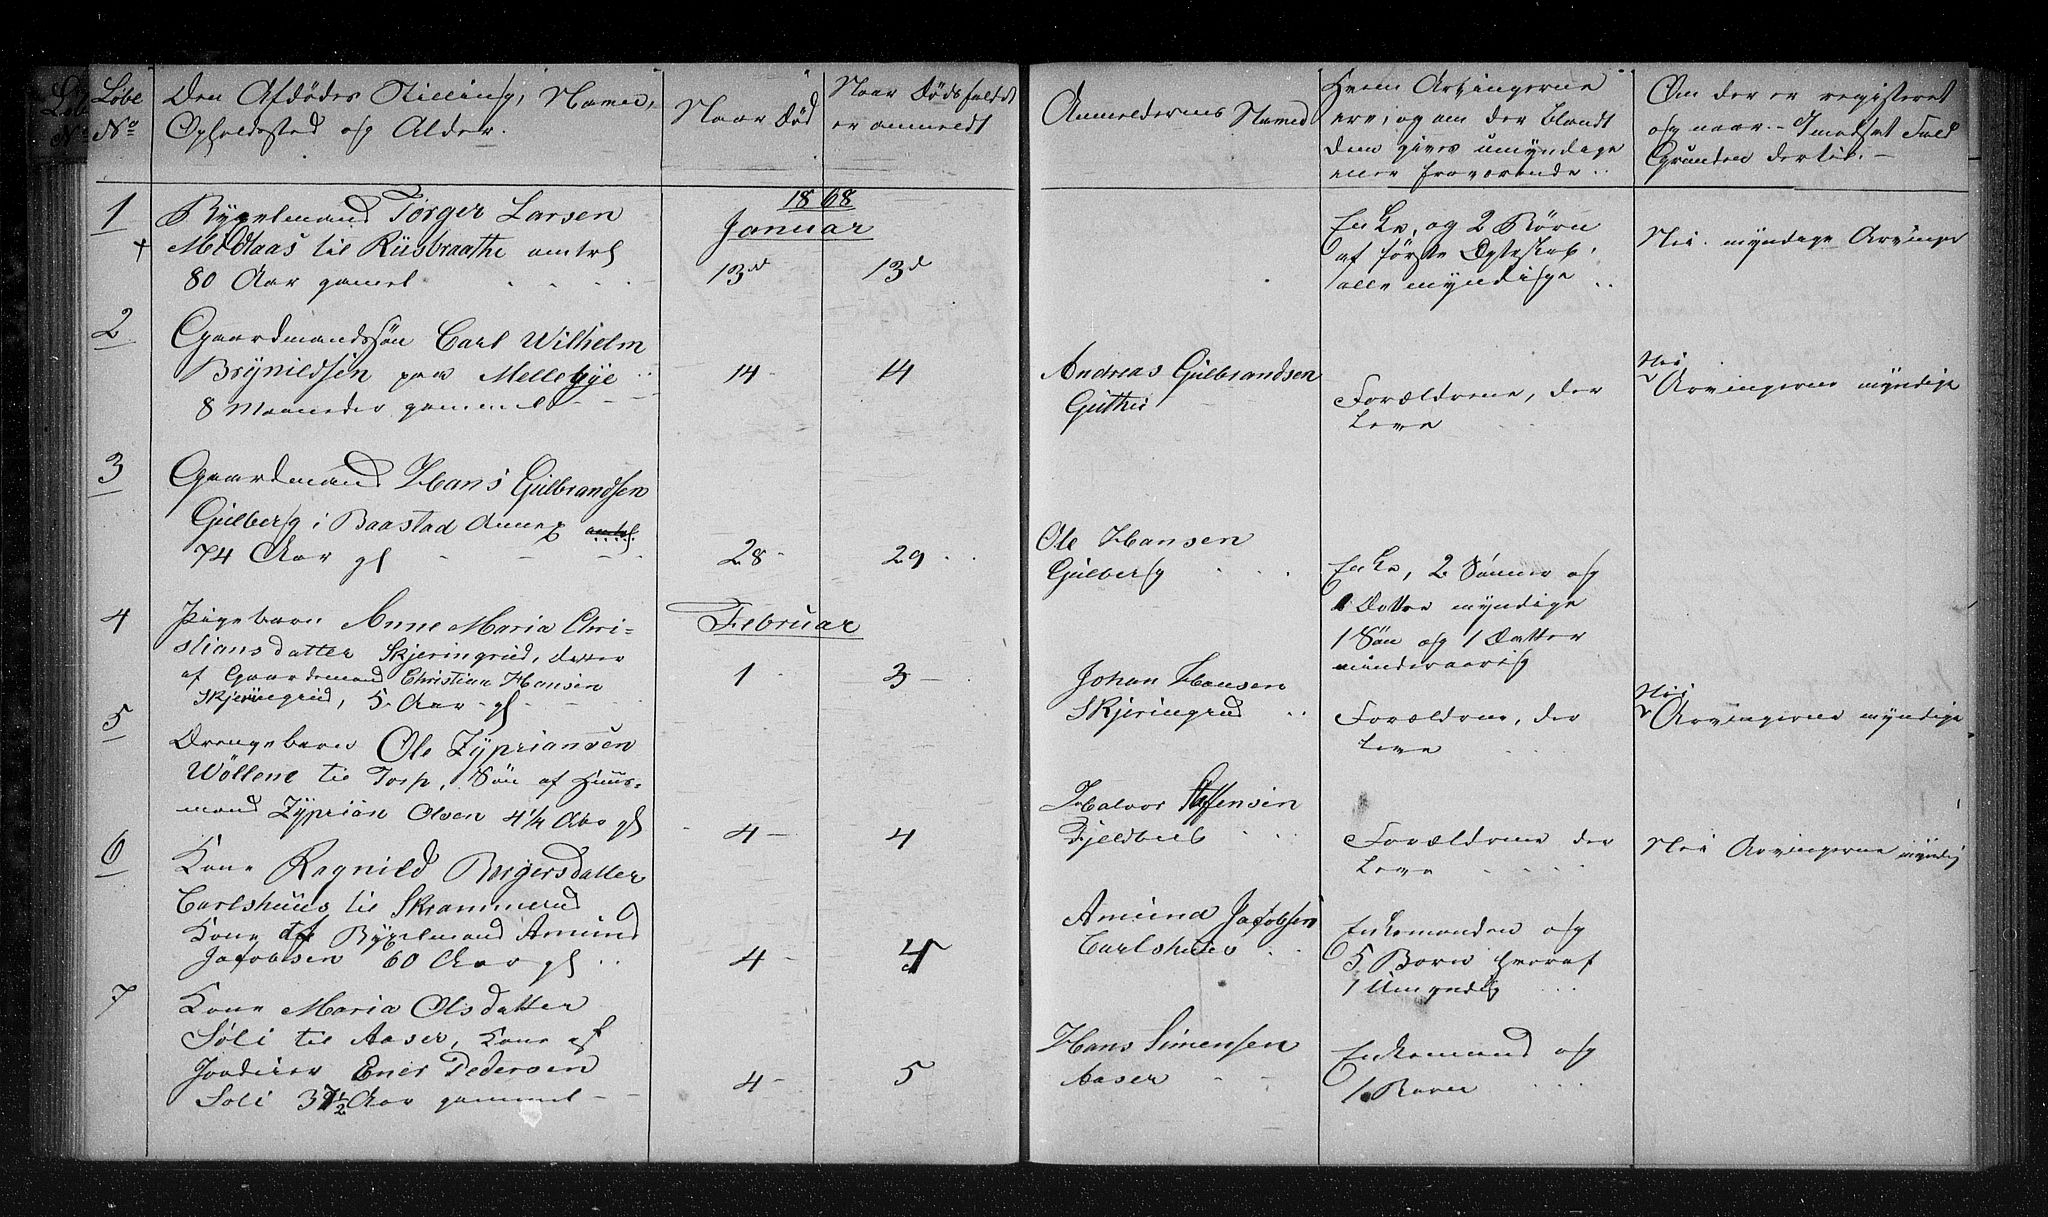 Løbe
No
Den Afdødes Stilling, Navn,
Opholdssted og Alder.
Naar Død
Naar Dødsfaldet
er anmeldt
Anmelderens Navn
Hvem Arvingerne
ere, og om der blandt
dem gives umyndige
eller fraværende
Om der er registeret
og naar. - I modsat Fald
Grunden dertil. -
1868
Januar
1
Bygselmand Törger Larsen
til Riisbraathe amtrl
80 Aar gamel
13de
13d
Enke, og 2 Børn
af første Ægteskab,
alle myndige
Nei. myndige Arvinger
2
Gaardmandssøn Carl Wilhelm
Brynildsen paa Mellebye
8 Maaneder gammel
14
14
Andreas Gulbrandsen
Guthu
Forældrene, der
Leve
Nei
Arvingerne myndige
3
Gaardmand Hans Gulbrandsen
Gulberg i Baastad Annex
74 Aar gl
28
29
Ole Hansen
Gulberg
Enke, 2 Sønner og
1 Datter myndige
1 Søn og 1 Datter
mindreaarig
Februar
4
Pigebarn Anne Maria Chri-
stiansdatter Skjeringrud, datter
af Gaardmand Christian Hansen
Skjeringrud, 5 Aar gl
1
3
Johan Hansen
Skjeringrud
Forældrene, der
leve
Nei
Arvingerne myndige
5
Drengebarn Ole Zypriansen
Wöllene til Torp, Søn af Huus-
mand Zyprian Olsen 4 1/4 Aar gl
4
4
Halvor Steffensen
Fjeldbeb
Forældrene der
Leve
Nei Arvingerne myndig
6
Kone Ragnild Borgersdatter
Carlshuus til Skrammerud
Kone af Bygselmand Amund
Jacobsen 60 Aar gl
4
5
Amund Jacobsen
Carlshuus
Enkemanden og
5 Børn hvoraf
1 Umyndig
7
Kone Maria Olsdatter
Söli til Aaser, Kone af
Jordeier Ener Pedersen
Söli 37 1/2 Aar gammel
4
5
Hans Simensen
Aaser
Enkemand og
1 Barn